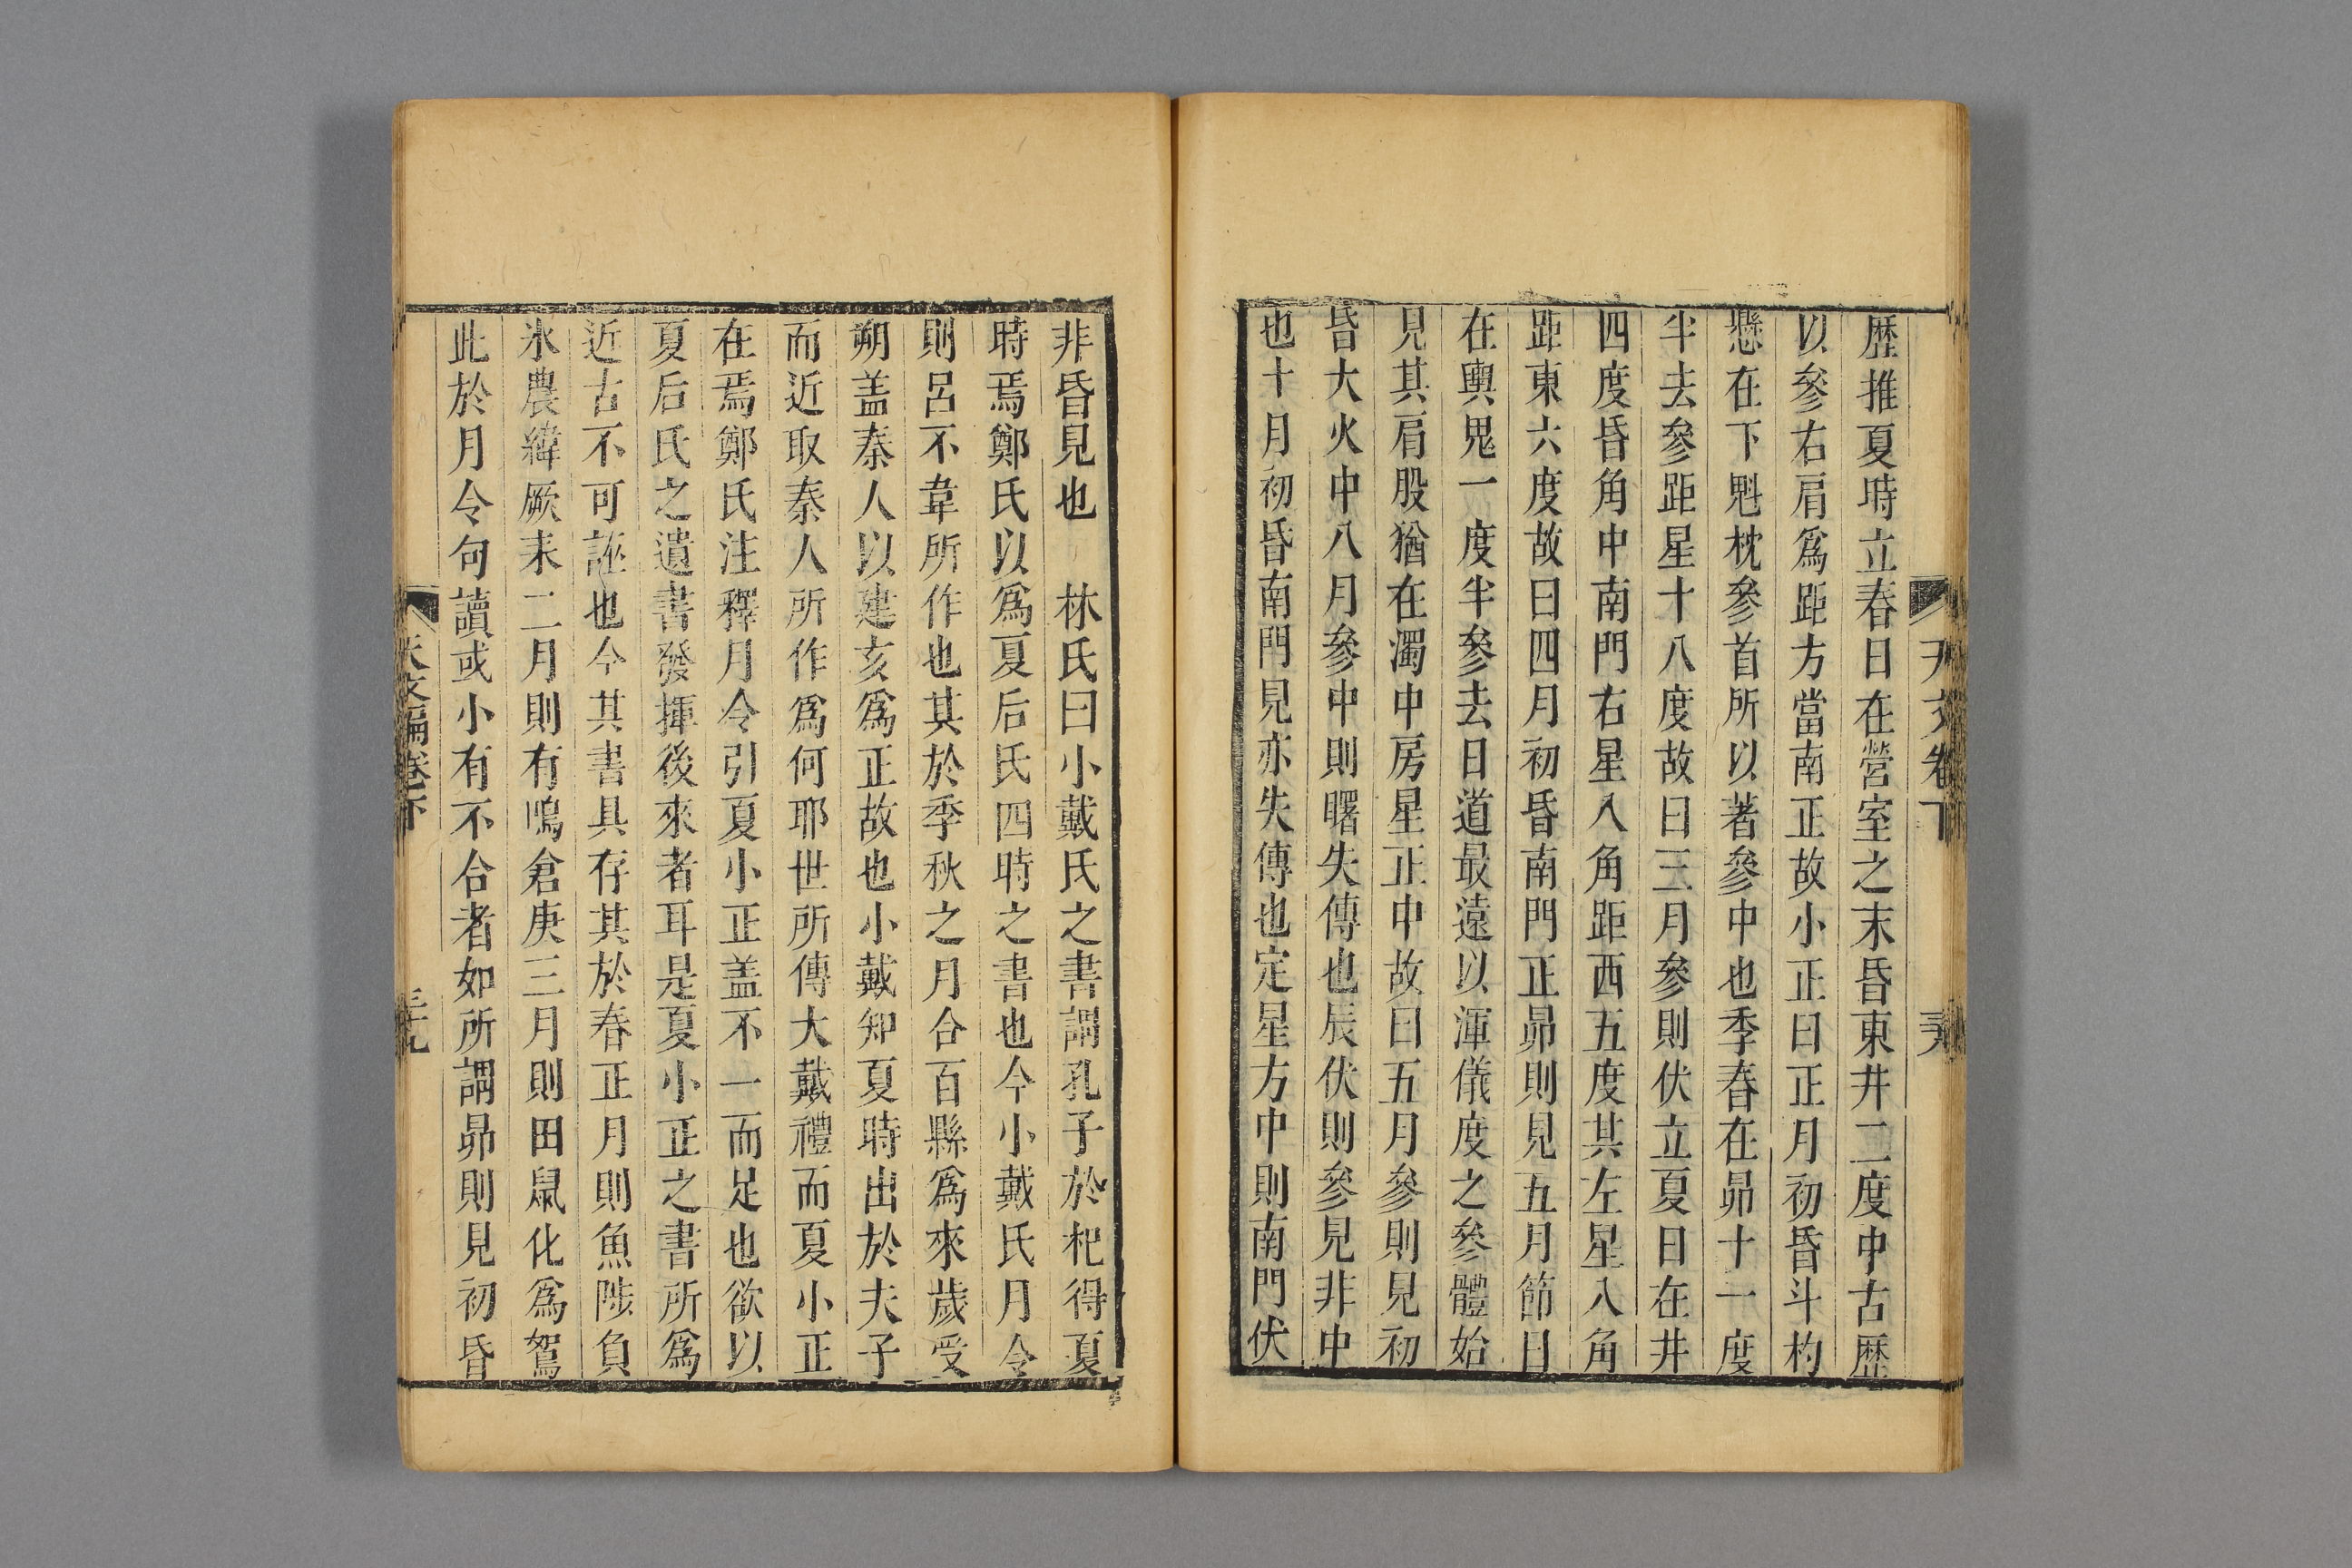 天文卷下
歷推夏時立春日在營室之末昏東井二度中古歷
以參右肩爲距方當南正故小正曰正月初昏斗杓
懸在下魁枕參首所以著參中也季春在昴十一度
半去參距星十八度故曰三月參則伏立夏日在井
四度昏角中南門右星入角距西五度其左星入角
距東六度故曰四月初昏南門正昴則見五月節日
在輿鬼一度半參去日道最遠以渾儀度之參體始
見其肩股猶在濁中房星正中故曰五月參則見初
昏大火中八月參中則曙失傳也辰伏則參見非中
也十月初昏南門見亦失傳也定星方中則南門伏
非昏見也　林氏曰小戴氏之書謂孔子於杞得夏
時焉鄭氏以爲夏后氏四時之書也今小戴氏月令
則呂不韋所作也其於季秋之月合百縣爲來歲受
朔盖秦人以建亥爲正故也小戴知夏時出於夫子
而近取秦人所作爲何耶世所傳大戴禮而夏小正
在焉鄭氏注釋月令引夏小正盖不一而足也欲以
夏后氏之遺書發揮後來者耳是夏小正之書所爲
近古不可誣也今其書具存其於春正月則魚陟負
氷農緯厥耒二月則有鳴倉庚三月則田鼠化爲鴽
此於月令句讀或小有不合者如所謂昴則見初昏
天文編卷下
三九